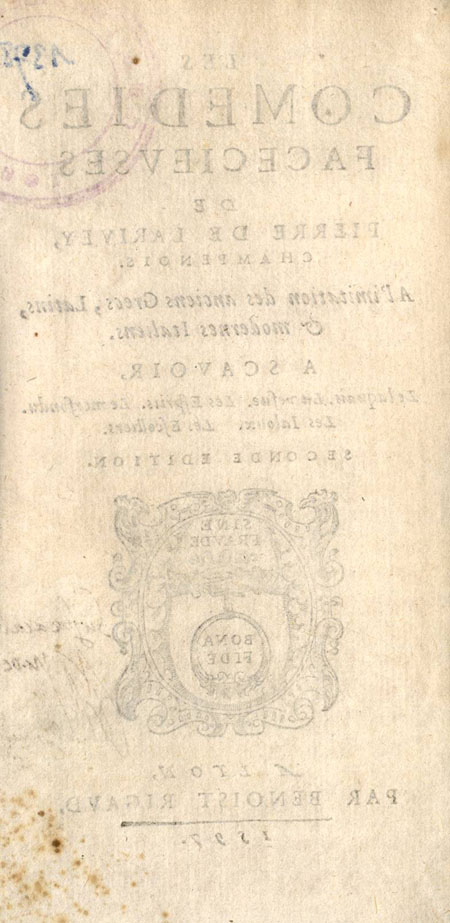 LES
COMEDIES
FACECIEVSES
DE
PIERRE DE LARIVEY,
CHAMPENOIS.
A l'imitation des anciens Grecs, Latins,
& modernes Italiens.
A SCAVOIR,
Le laquais. La vefue. Les Esprits. Le morfondu.
Les Ialoux. Les Escolliers.
SECONDE EDITION.
SINE
FRAVDE
BONA
FIDE
A LYON,
PAR BENOIST RIGAVD,
1597.